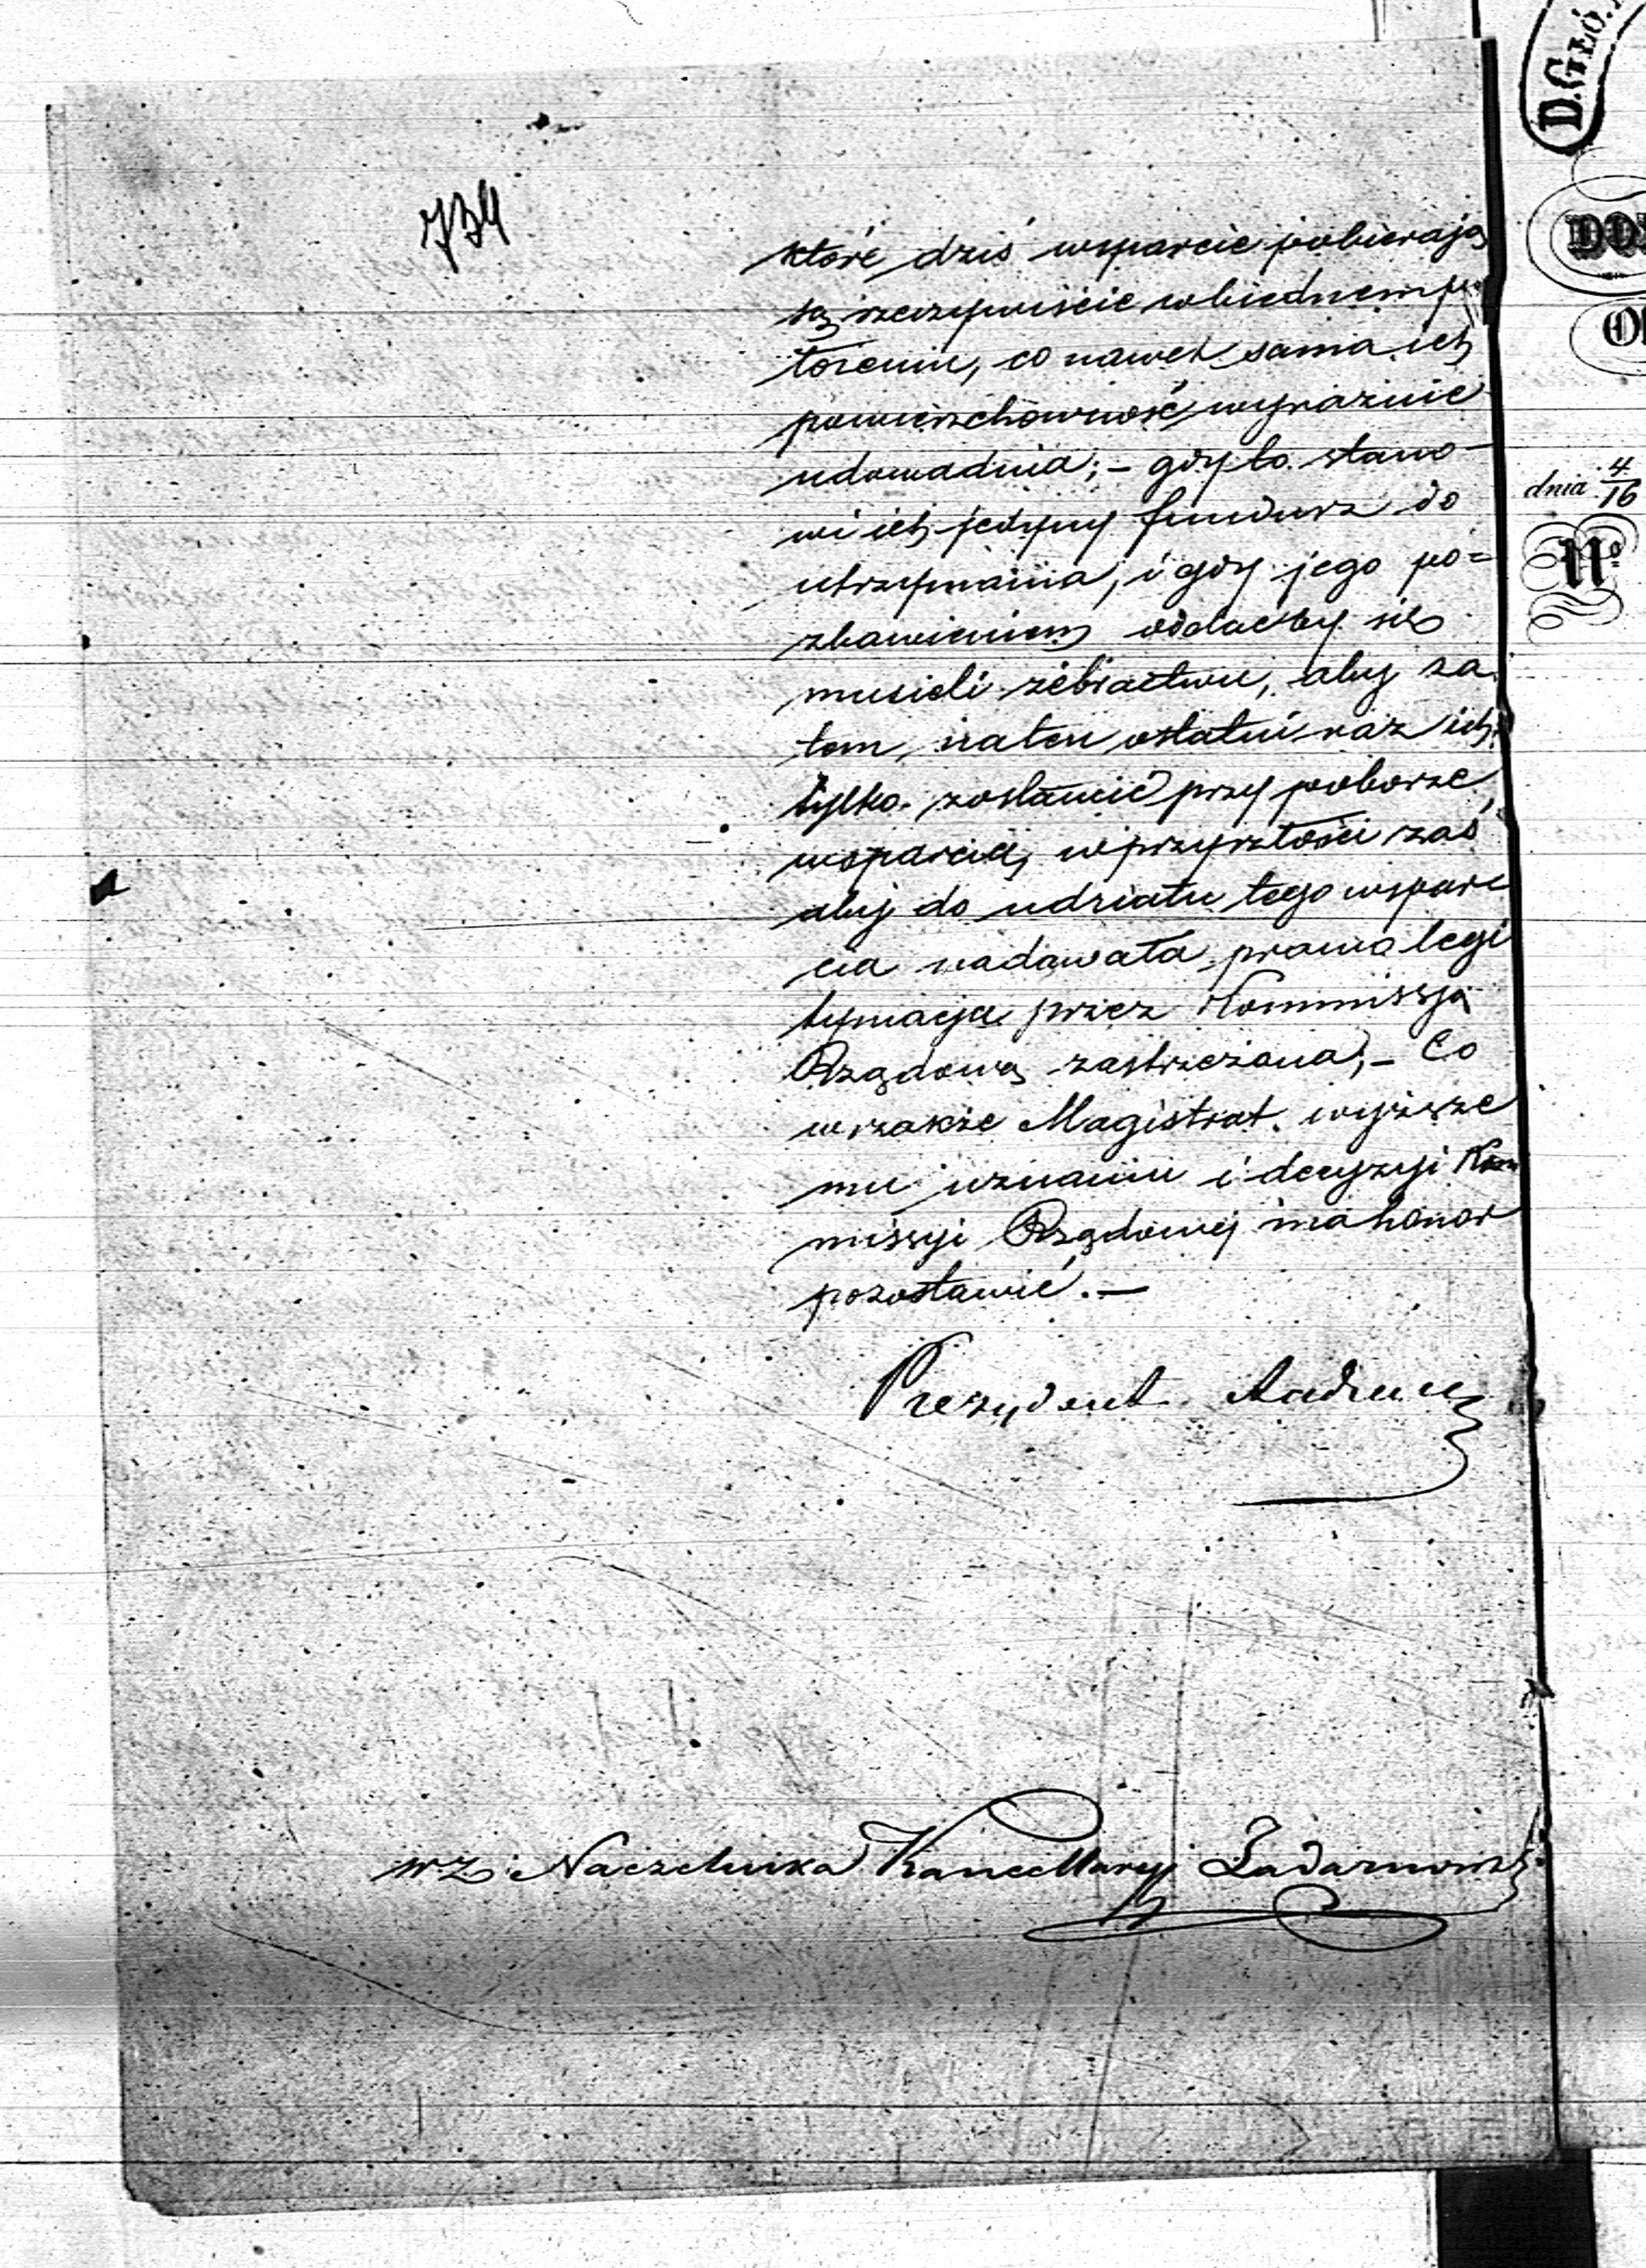 734
które dziś wsparcie pobierają
są rzeczywiście w biednem po
łożeniu, co nawet sama ich
powierzchowność wyraźnie
udowadnia; – gdy to stano-
wi ich jedyny fundusz do
utrzymania, i gdy jego po=
zbawieniem oddaćby się
musieli żebractwu, aby za
tem na ten ostatni raz ich
tylko zostawić przy poborze
wsparcia, w przyszłości zaś
aby do udziału tego wspar
cia nadawała prawo legi
tymacja przez Kommissją
Rządową zastrzeżona; – Co
wszakże Magistrat wyższe
mu uznaniu i decyzyi Kom
missyi Rządowej ma honor
pozostawić. –
Prezydent
wz. Naczelnika Kancellaryi
D. GŁÓ.
DO
O
dnia 4/16
No